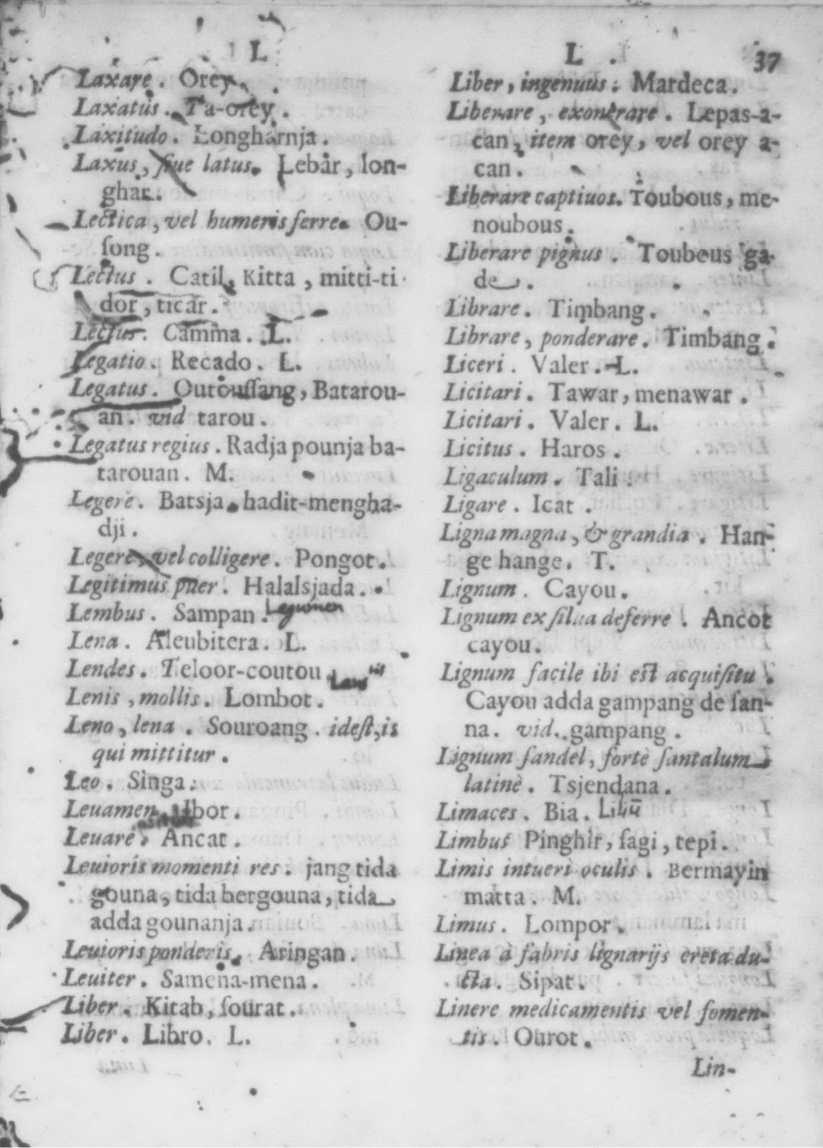 L
Laxare. Orey.
Laxatus. Ta-orey.
Laxitudo. Longharnja.
Laxus, siue latus. Lebar, lon-
ghar.
Lectica, vel humeris ferre. Ou-
song.
Lectus. Catil, Kitta, mitti-ti
dor, ticar.
Lectus. Camma. L.
Legatio. Recado. L.
Legatus. Outoussang, Batarou-
an. vid tarou.
Legatus regius. Radja pounja ba-
tarouan. M.
Legere. Batsja, hadit-mengha-
dji.
Legere, vel colligere. Pongot.
Legitimus puer. Halalsjada.
Lembus. Sampan.
Lena. Aleubitera. L.
Lendes. Teloor-coutou
Lenis, mollis. Lombot.
Leno, lena. Souroang. idest, is
qui mittitur.
Leo. Singa.
Leuamen. Ibor.
Leuare. Ancat.
Leuioris momenti res. jang tida
gouna, tida bergouna, tida
adda gounanja.
Leuioris ponderis. Aringan.
Leuiter. Samena-mena.
Liber. Kitab, sourat.
Liber. Libro. L.
L. 37
Liber, ingenuus. Mardeca.
Liberare, exonerare. Lepas-a-
can, item orey, vel orey a-
can.
Liberare captiuos. Toubous, me-
noubous.
Liberare pignus. Toubous ga-
de.
Librare. Timbang.
Librare, ponderare. Timbang.
Liceri. Valer. L.
Licitari. Tawar, menawar.
Licitari. Valer. L.
Licitus. Haros.
Ligaculum. Tali.
Ligare. Icat.
Ligna magna, & grandia. Han-
ge hange. T.
Lignum. Cayou.
Lignum ex silua deferre. Ancot
cayou.
Lignum facile ibi est acquisitu.
Cayou adda gampang de san-
na. vid. gampang.
Lignum sandel, forte santalum
latinè. Tsjendana.
Limaces. Bia.
Limbus Pinghir, sagi, tepi.
Limis intueri oculis. Bermayin
matta. M.
Limus. Lompor.
Linea à fabris lignarijs creta du-
cta. Sipat.
Linere medicamentis vel fomen-
tis. Ourot.
Lin-